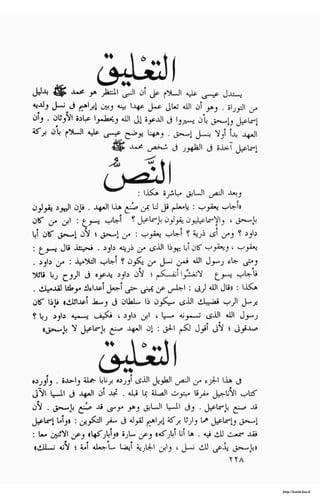 التعليق
يستدل عيسى عليه السلام على أن النبى المنتظر هو محمد ﷺ بدليل
من التوراة . وهو أن الله تعالى عمل عهدا بينه وبين إبراهيم فى نسل ولديه
إسماعيل وإسحق بأن يسيروا فى الدعوة إلى الله ويحطموا عبادة الأوثان . وأن
العهد بدأ أولا بنسل إسحق . وههنا يوضح عيسى عليه السلام بأن بركة
إسماعيل آخذة فى الظهور فى شخص محمد ﷺ
النص
وبعد النص السابق مباشرة هكذا :
«أجاب يعقوب : يامعلم قل لنا بمن صنع هذا العهد . فإن اليهود يقولون
بإسحق ، والإسماعيليون يقولون بإسماعيل ؟ أجاب يسوع : ابن من كان
داود ؟ ومن أى ذرية ؟ أجاب يعقوب : من إسحق ؛ لأن إسحق كان أبا
يعقوب ، ويعقوب كان أبا يهوذا الذى من ذريته داود . فحينئذ قال يسوع :
ومتى جاء رسول الله فمن نسل من يكون ؟ أجاب التلاميذ : من داود .
فأجاب يسوع لاتغشوا أنفسكم ؛ لأن داود يدعوه فى الروح ربا قائلا
هكذا : «قال الله لربى : اجلس عن يمينى حتى أجعل أعداءك موطئا لقدميك .
يرسل الرب قضيبك الذى سيكون ذا سلطان فى وسط أعدائك» فإذا كان
رسول الله الذى تسمونه مسيا ، ابن داود ، فكيف يسميه داود ربا ؟
صدقونى ؛ لأنى أقول لكم الحق : إن العهد صنع بإسماعيل لا بإسحق»
التعليق
فى هذا الجزء من النص الطويل الذى أورده برنابا جملة واحدة . وأورده
كتاب الأناجيل مفرقا مبتوت الصلة بما قبله . تجد أن العهد فى المسيا الآتى
قد صنع بإسماعيل . وفى المسيا السابق وهو موسى قد صنع بإسحق . لأن
إسحق وإسماعيل هما وارثا بركة إبراهيم لقوله فى سفر التكوين : «وأما إسماعيل
فقد سمعت لك فيه . ها أنا أباركه» وعن سارة «وأباركها» وعن الاثنين معا :
«بإسحق يدعى لك نسل ، وابن الجارية أيضا سأجعله أمة ؛ لأنه نسلك»
٢٢٨